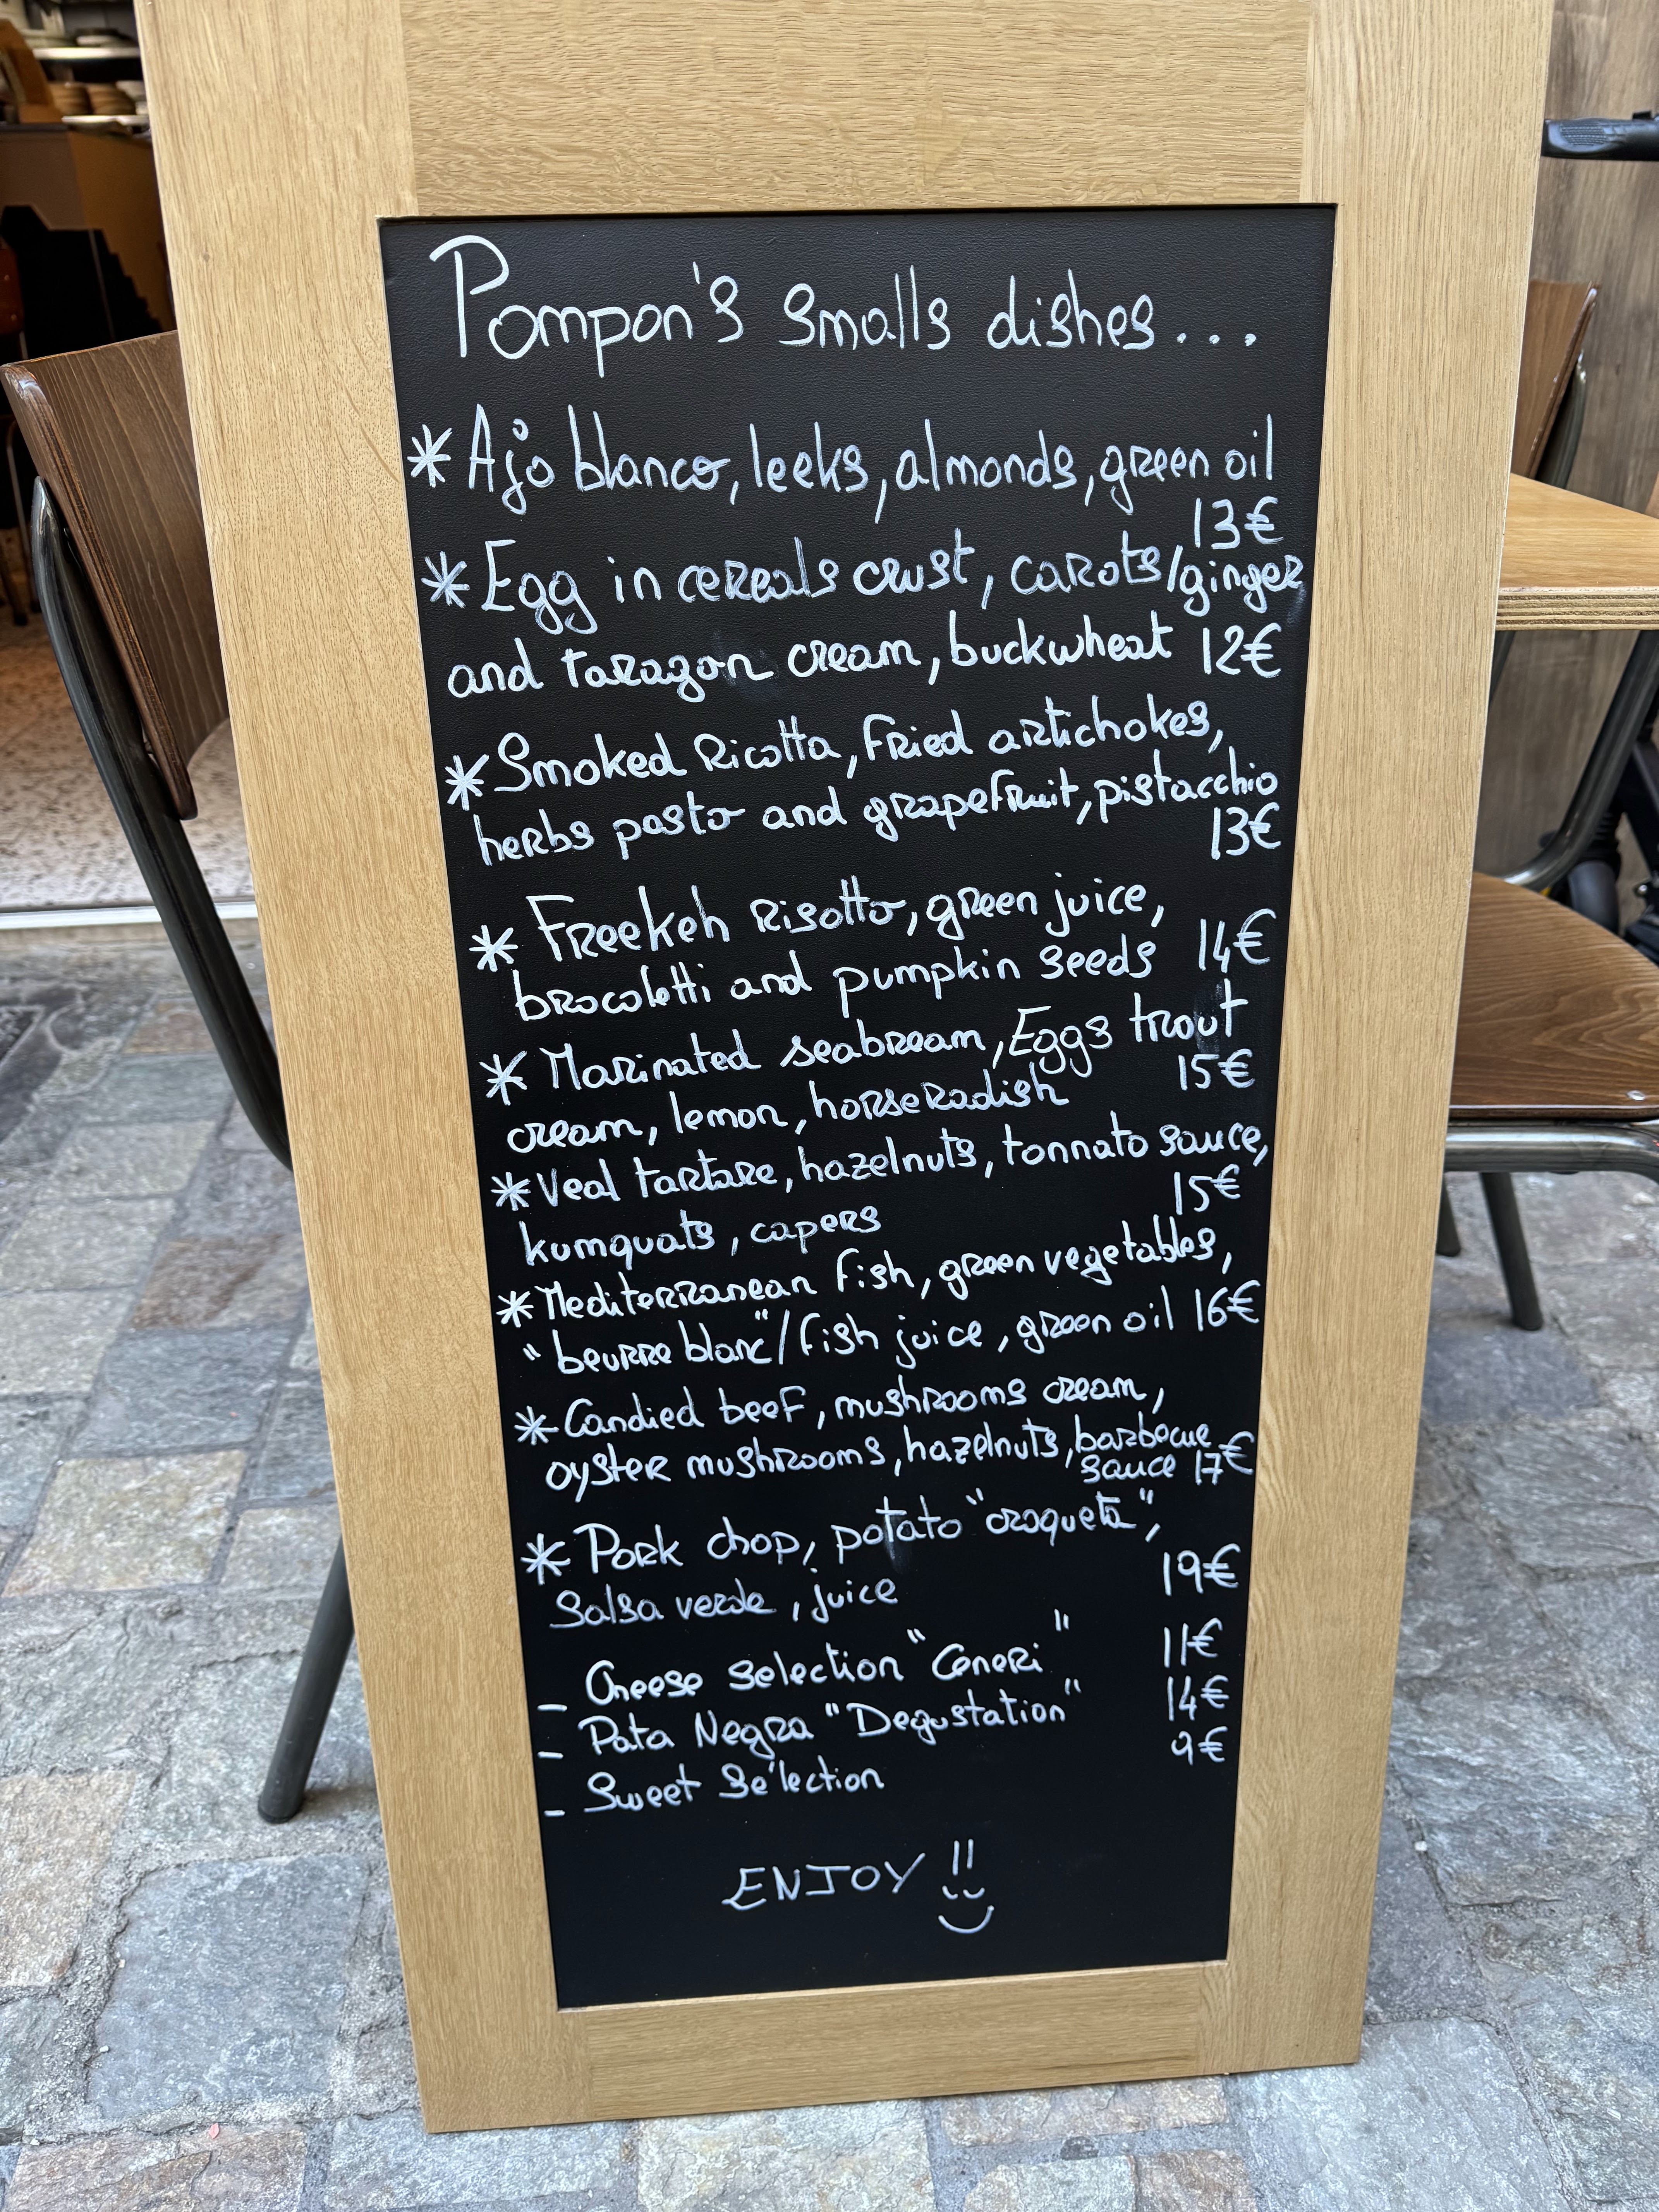 Pompon's smalls dishes...
* Ajo blanco, leeks, almonds, green oil
13€
* Egg in cereals crust, carots/ginger
and taragon cream, buckwheat 12€
* Smoked Ricotta, Fried artichokes,
herbs pasto and grapefruit, pistacchio
13€
* Freekeh Risotto, green juice,
brocoletti and pumpkin seeds 14€
* Marinated seabream, Eggs trout
cream, lemon, horseradish 15€
* Veal tartare, hazelnuts, tonnato sauce,
kumquats, capers 15€
* Mediterranean fish, green vegetables,
"beurre blanc"/fish juice, green oil 16€
* Candied beef, mushrooms cream,
oyster mushrooms, hazelnuts, barbecue
sauce 17€
* Pork chop, potato "croqueta",
Salsa verde, juice 19€
- Cheese selection "Ceneri" 11€
- Pata Negra "Degustation" 14€
- Sweet Sélection 9€
ENJOY !!